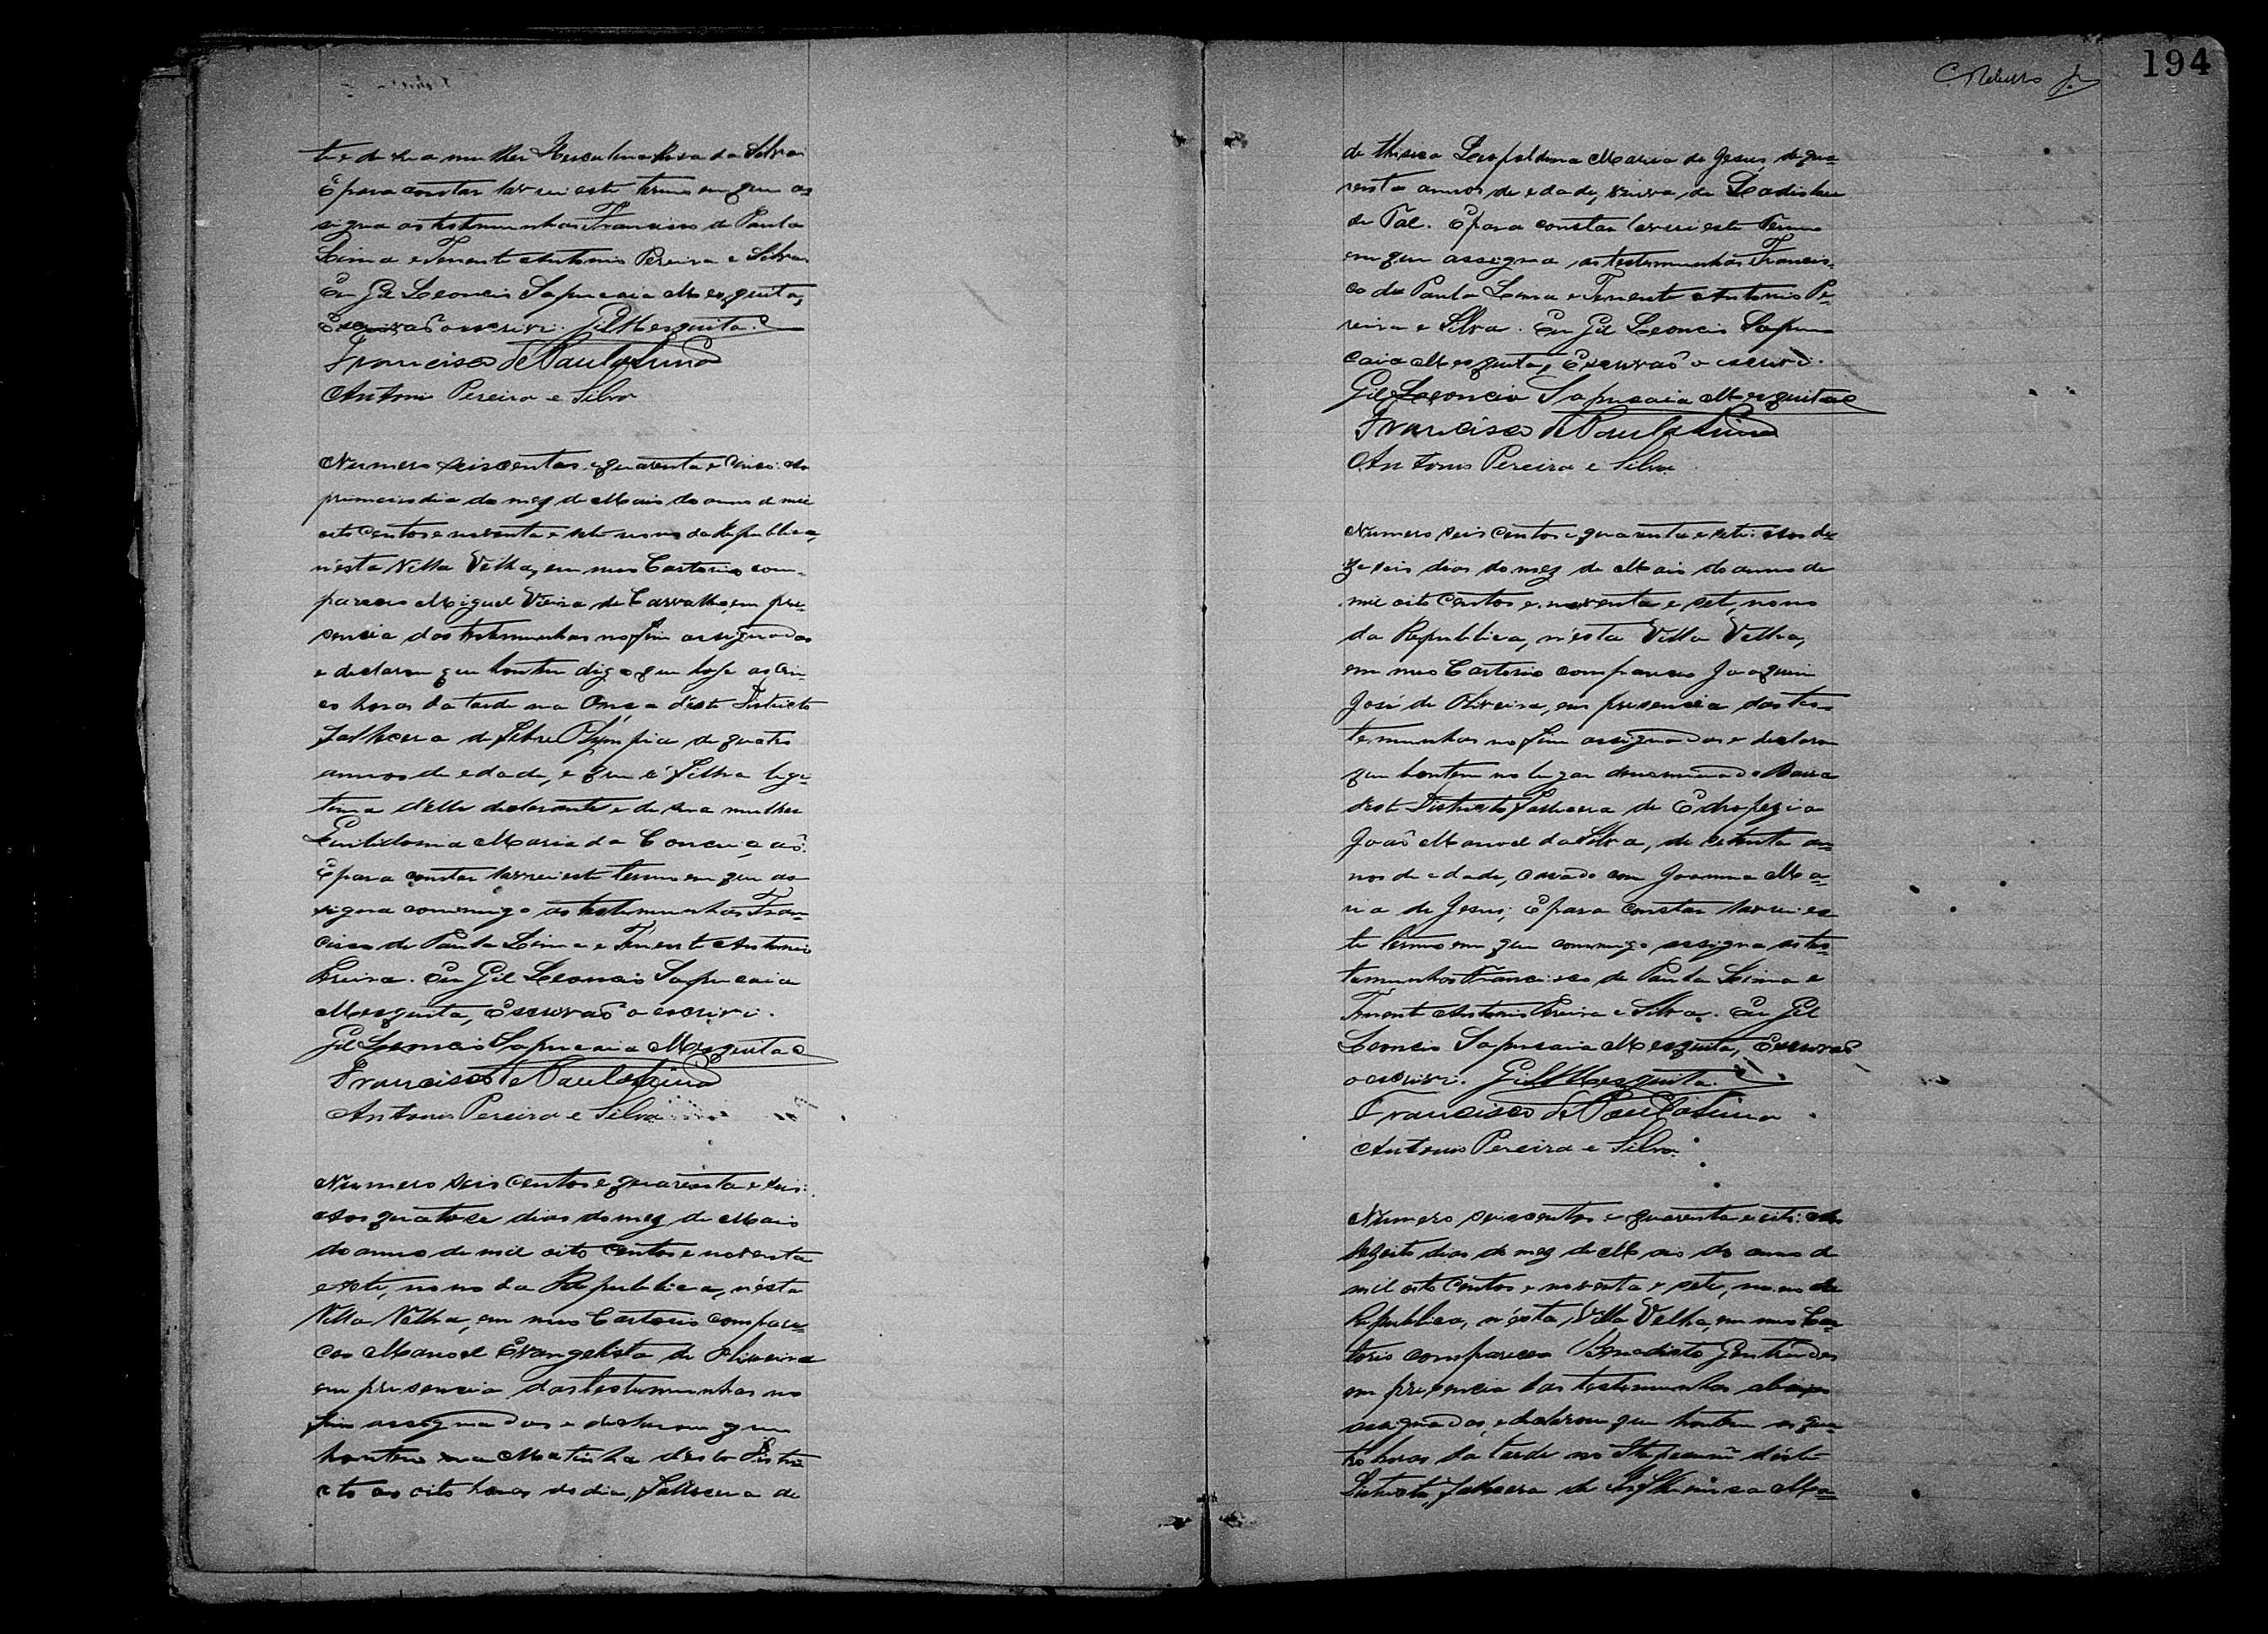 te e de sua mulher Herculina Rosa da Silva
E para constar lavrei este termo em que as
signa as testemunhas Francisco de Paula
Lima e Tenente Antonio Pereira e Silva
Eu Gil Leoncio Sapucaia Mesquita,
Escrivaõ o escrivi. Gil Mesquita.
Francisco de Paula Lima
Antonio Pereira e Silva
Numero seis centos e quarenta e cinco: Ao
primeiro dia do mez de Maio do anno de mil
oito centos e noventa e sete nono da Republica,
n'esta Villa Velha, em meu Cartorio com-
pareceo Miguel Vieira de Carvalho, em pre-
sencia das testemunhas no fim assignadas
e declarou que hontem digo que hoje as cin-
co horas da tarde na Onça d'este Districto
fallecera de febre Olympia de quatro
annos de edade, e que é filha legi-
tima d'elle declarante e de sua mulher
Maria da Conceiçaõ.
E para constar lavrei este termo em que as-
signa commigo as testemunhas Fran-
cisco de Paula Lima e Tenente Antonio
Pereira. Eu Gil Leoncio Sapucaia
Mesquita, Escrivaõ o escrivi.
Gil Leoncio Sapucaia Mesquita
Francisco de Paula Lima
Antonio Pereira e Silva
Numero seis centos e quarenta e seis:
Aos quatorze dias do mez de Maio
do anno de mil oito centos e noventa
e sete, nono da Republica, n'esta
Villa Velha, em meu Cartorio compare-
ceo Manoel Evangelista de Oliveira
em presencia das testemunhas no
fim assignadas e declarou que
hontem na Matinha d'este Distri-
cto as oito horas do dia, fallecera de
194
de Thisica Leopoldina Maria de Jesus, de qua-
renta annos de edade, viuva, de Ladislau
de Tal. E para constar lavrei este Termo
em que assigna, as testemunhas Francis-
co de Paula Lima e Tenente Antonio Pe-
reira e Silva. Eu Gil Leoncio Sapu
caia Mesquita, Escrivaõ o escrivi.
Gil Leoncio Sapucaia Mesquita
Francisco de Paula Lima
Antonio Pereira e Silva
Numero seis centos e quarenta e sete: Aos de-
ze seis dias do mez de Maio do anno de
mil oito centos e noventa e sete, nono
da Republica, n'esta Villa Velha,
em meu Cartorio compareceo Joaquim
José de Oliveira, em presencia das tes-
temunhas no fim assignadas e declarou
que hontem no lugar denominado Barra
d'este Districto fallecera de Edropezia
Joaõ Manoel da Silva, de setenta an-
nos de edade, casado com Joanna Ma-
ria de Jesus; E para constar lavrei es-
te termo em que commigo assigna as tes-
temunhas Francisco de Paula Lima e
Tenente Antonio Pereira e Silva. Eu Gil
Leoncio Sapucaia Mesquita, Escrivaõ
o escrivi. Gil Mesquita.
Francisco de Paula Lima
Antonio Pereira e Silva
Numero seis centos e quarenta e oito: Aos
dezoito dias do mez de Maio do anno de
mil oito centos e noventa e sete, nono da
Republica, n'esta Villa Velha, em meu Car-
torio compareceo Benedicto
em presencia das testemunhas abaixo
assignadas, e declarou que hontem as qua-
tro horas da tarde no d'este
Districto, fallecera de Ma-